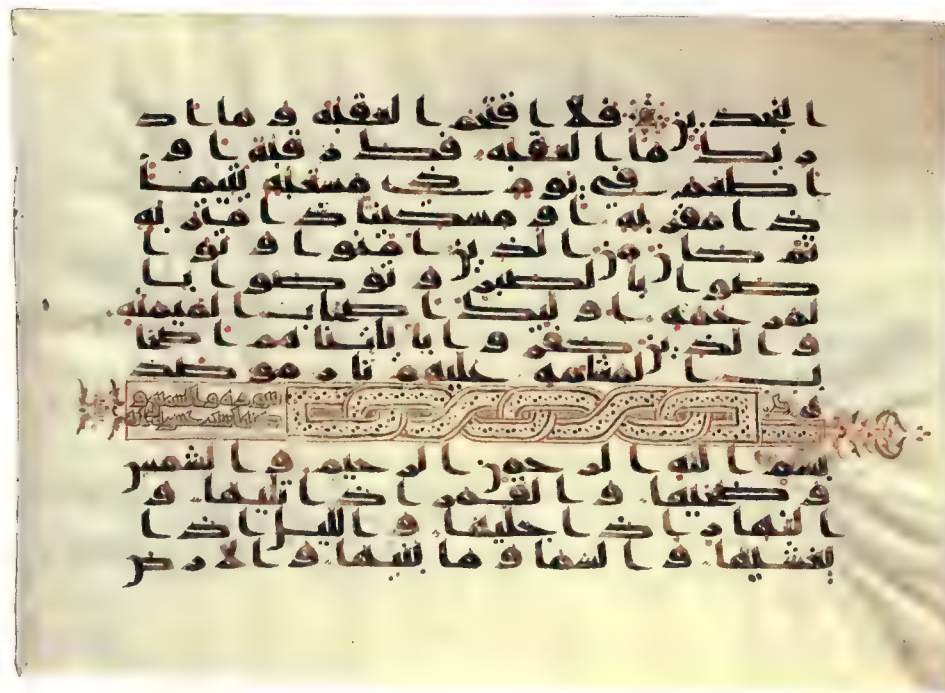 النجدين فلا اقتحم العقبه وما اد
ريك ما العقبه فك رقبه او
اطعم في يوم ذي مسغبه يتيما
ذا مقربه او مسكينا ذا متربه
ثم كان من الذين امنوا وتوا
صوا بالصبر وتوصوا با
لمرحمه اوليك اصحاب الميمنه
والذين كفروا باياتنا هم اصحا
ب المشامه عليهم نار موصد
ه
سورة والشمس و
ضحيها
بسم الله الرحمن الرحيم والشمس
وضحيها والقمر اذا تليها و
النهار اذا جليها والليل اذا
يغشيها والسما وما بنيها والارض